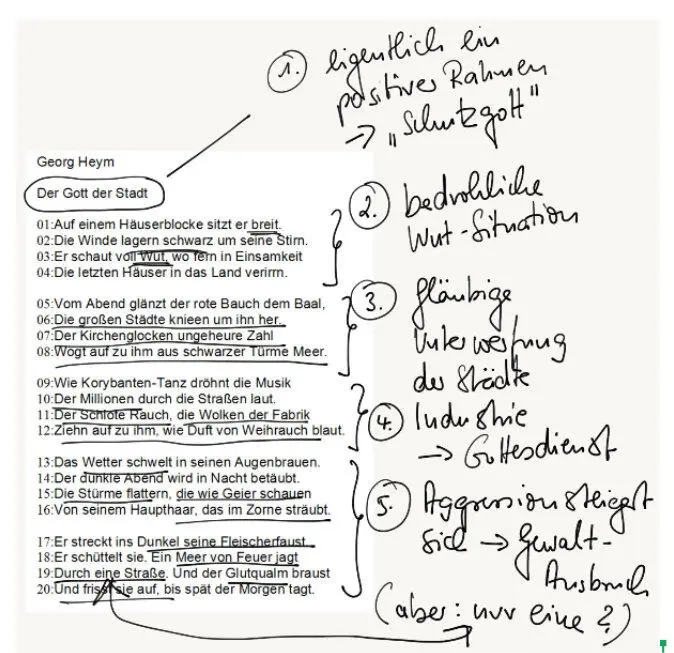 1. eigentlich ein
positives Rahmen
→ „Schutzgott"
Georg Heym
Der Gott der Stadt
01:Auf einem Häuserblocke sitzt er breit.
02:Die Winde lagern schwarz um seine Stirn.
03:Er schaut voll Wut, wo fern in Einsamkeit
04:Die letzten Häuser in das Land verirrn.
2. bedrohliche
Wut-Situation
05:Vom Abend glänzt der rote Bauch dem Baal,
06:Die großen Städte knieen um ihn her.
07:Der Kirchenglocken ungeheure Zahl
08:Wogt auf zu ihm aus schwarzer Türme Meer.
3. gläubige
Unterwerfung
der Städte
09:Wie Korybanten-Tanz dröhnt die Musik
10:Der Millionen durch die Straßen laut.
11:Der Schlote Rauch, die Wolken der Fabrik
12:Ziehn auf zu ihm, wie Duft von Weihrauch blaut.
4. Industrie
→ Gottesdienst
13:Das Wetter schwelt in seinen Augenbrauen.
14:Der dunkle Abend wird in Nacht betäubt.
15:Die Stürme flattern, die wie Geier schauen
16:Von seinem Haupthaar, das im Zorne sträubt.
17:Er streckt ins Dunkel seine Fleischerfaust.
18:Er schüttelt sie. Ein Meer von Feuer jagt
19:Durch eine Straße. Und der Glutqualm braust
20:Und frisst sie auf, bis spät der Morgen tagt.
5. Aggression steigert
sich → Gewalt-
Ausbruch
(aber: nur eine?)